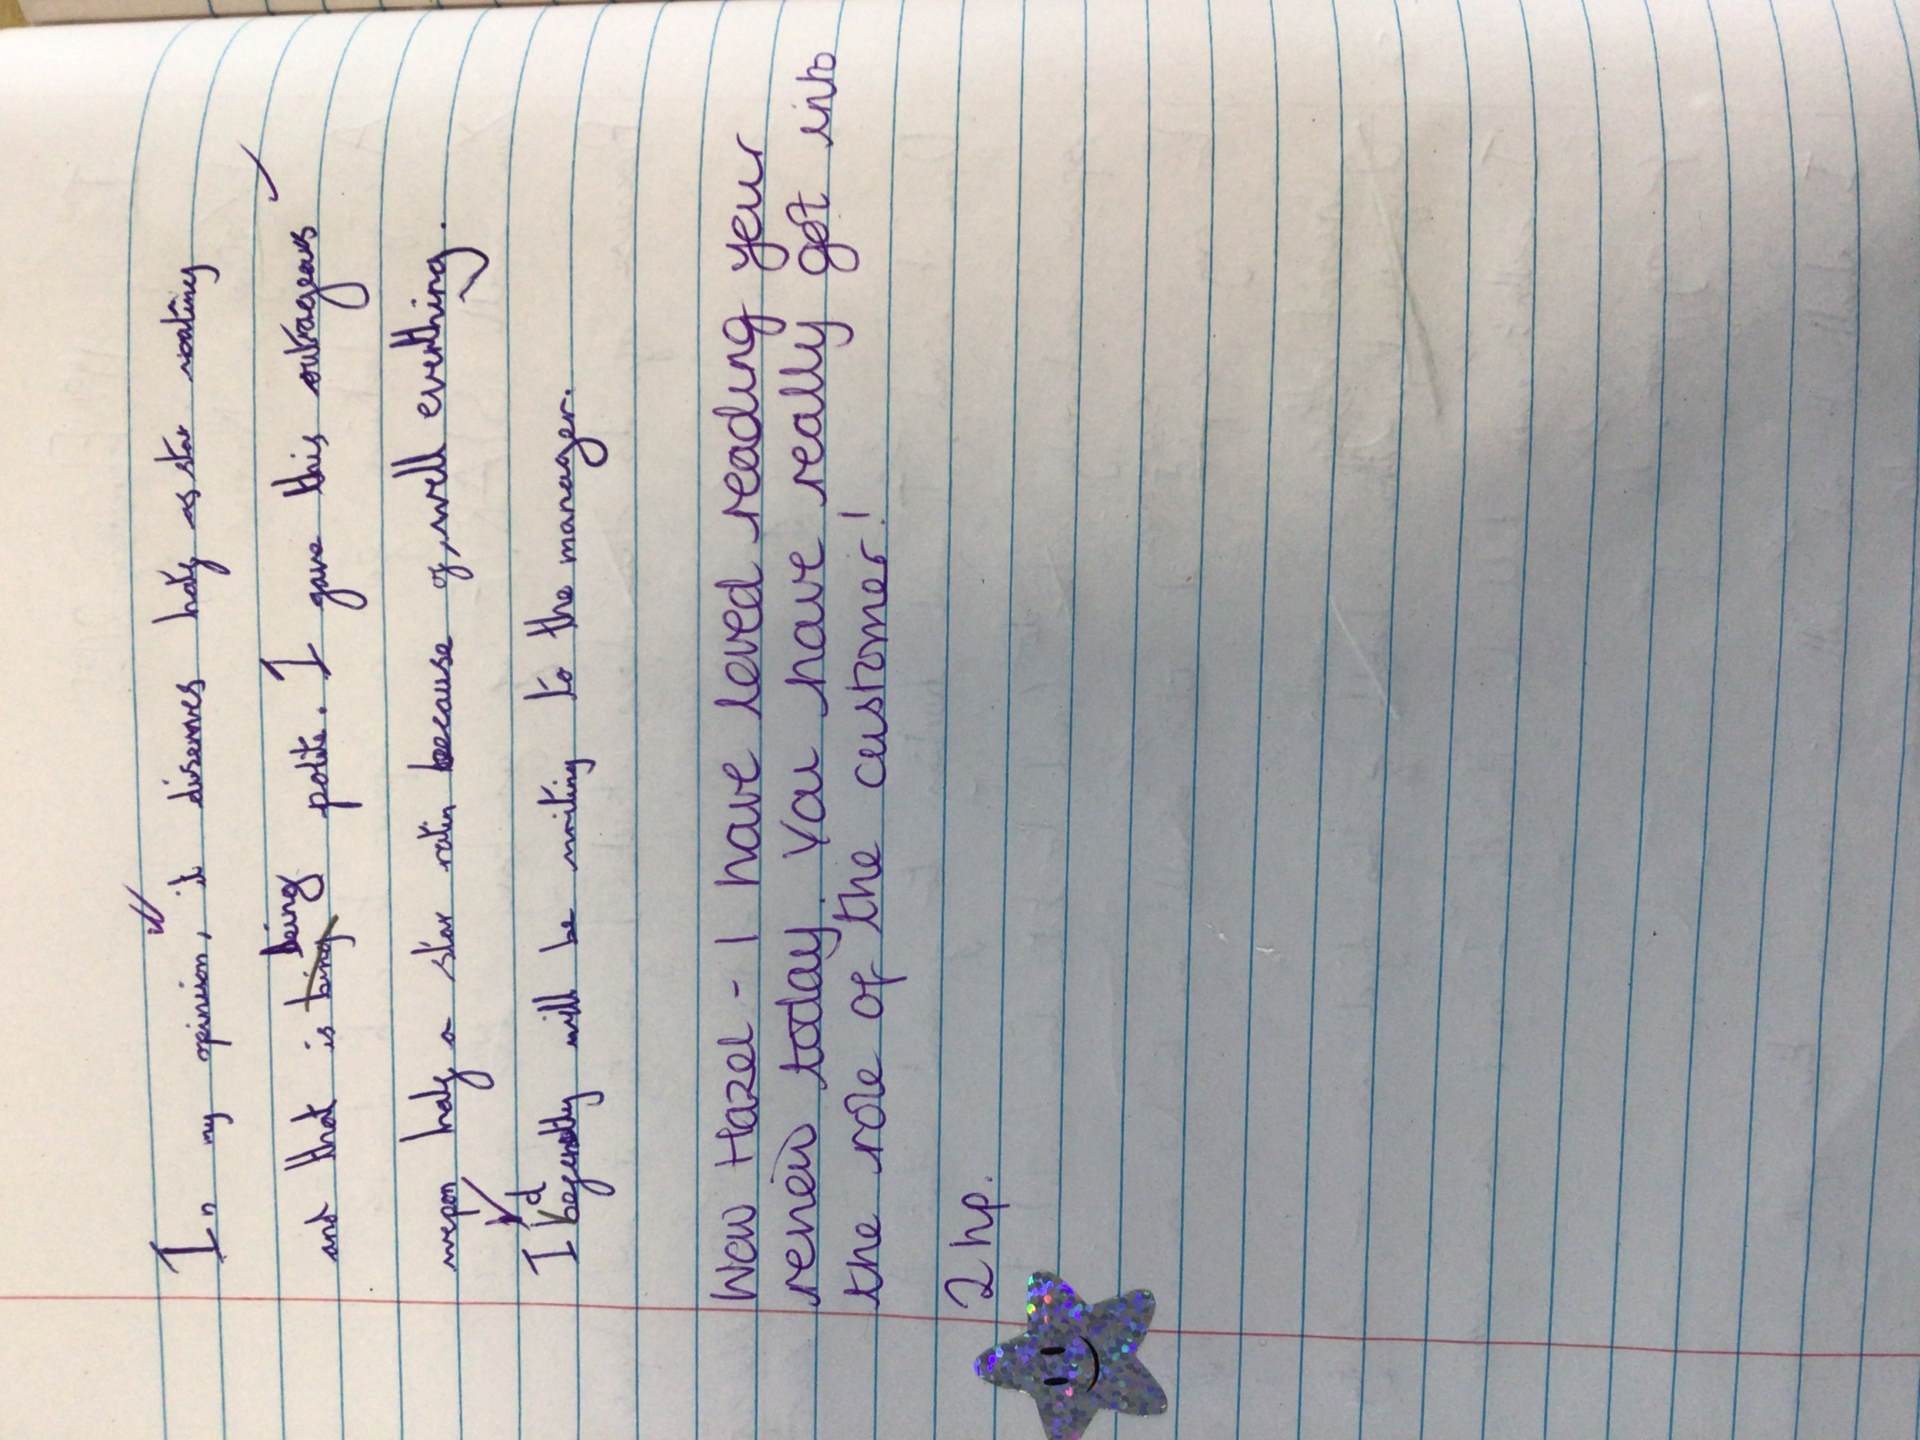 In my opinion, it diserves half a star roating
and that is being bing polite. I gave this outrageous
half a star ratin because of, well everthing.
I begently will be writing to the manager.
d
Wow Hazel - I have loved reading your
review today. You have really got into
the role of the customer!
2 hp.